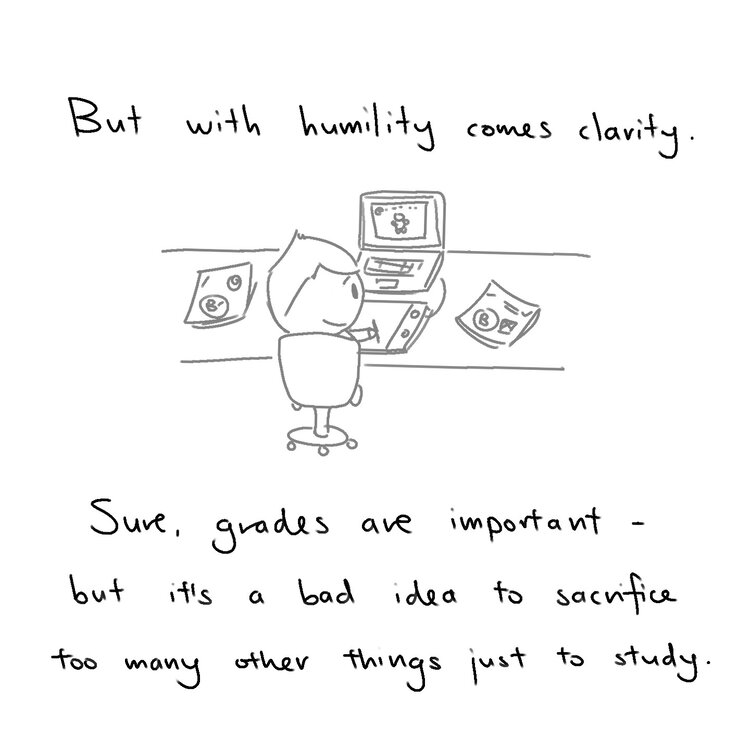 But with humility comes clarity.
B-
B
Sure, grades are important -
but it's a bad idea to sacrifice
too many other things just to study.